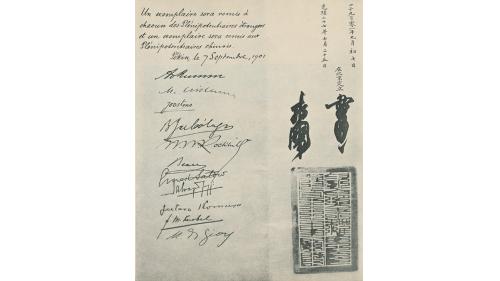 Un exemplaire sera remis à
chacun des Plénipotentiaires étrangers
et un exemplaire sera remis aux
Plénipotentiaires chinois.
Pékin, le 7 Septembre, 1901
Joostens
B. J. de Cólogan
W. W. Rockhill
Beau
Ernest Satow
Jutaro Komura
F. M. Knobel
M. de Giers
一千九百零一年九月初七日
光緒二十七年七月二十五日
在北京定立